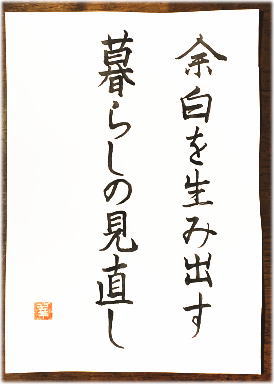 余白を生み出す
暮らしの見直し